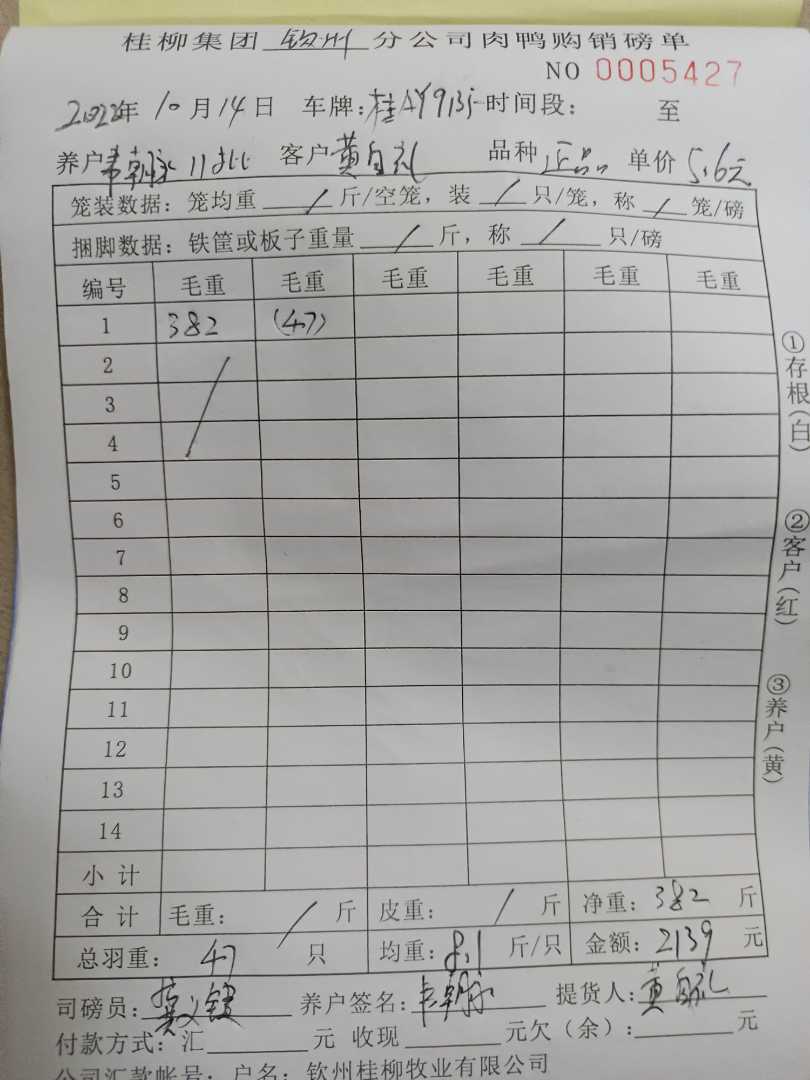 桂柳集团 钦州 分公司肉鸭购销磅单
NO 0005427
2022年 10月14日 车牌:桂AY913 时间段: 至
养户 韦朝 11批 客户 黄自礼 品种 正品 单价 5.6元
笼装数据: 笼均重 / 斤/空笼, 装 / 只/笼, 称 / 笼/磅
捆脚数据: 铁筐或板子重量 / 斤, 称 / 只/磅
编号 毛重 毛重 毛重 毛重 毛重 毛重
1 382 (47)
2
3
4
5
6
7
8
9
10
11
12
13
14
小计
合计 毛重: / 斤 皮重: / 斤 净重: 382 斤
总羽重: 47 只 均重: 8.1 斤/只 金额: 2139 元
司磅员: 养户签名: 韦朝 提货人: 黄自礼
付款方式: 汇 元 收现 元欠(余): 元
公司汇款帐号: 户名: 钦州桂柳牧业有限公司
①存根(白)
②客户(红)
③养户(黄)